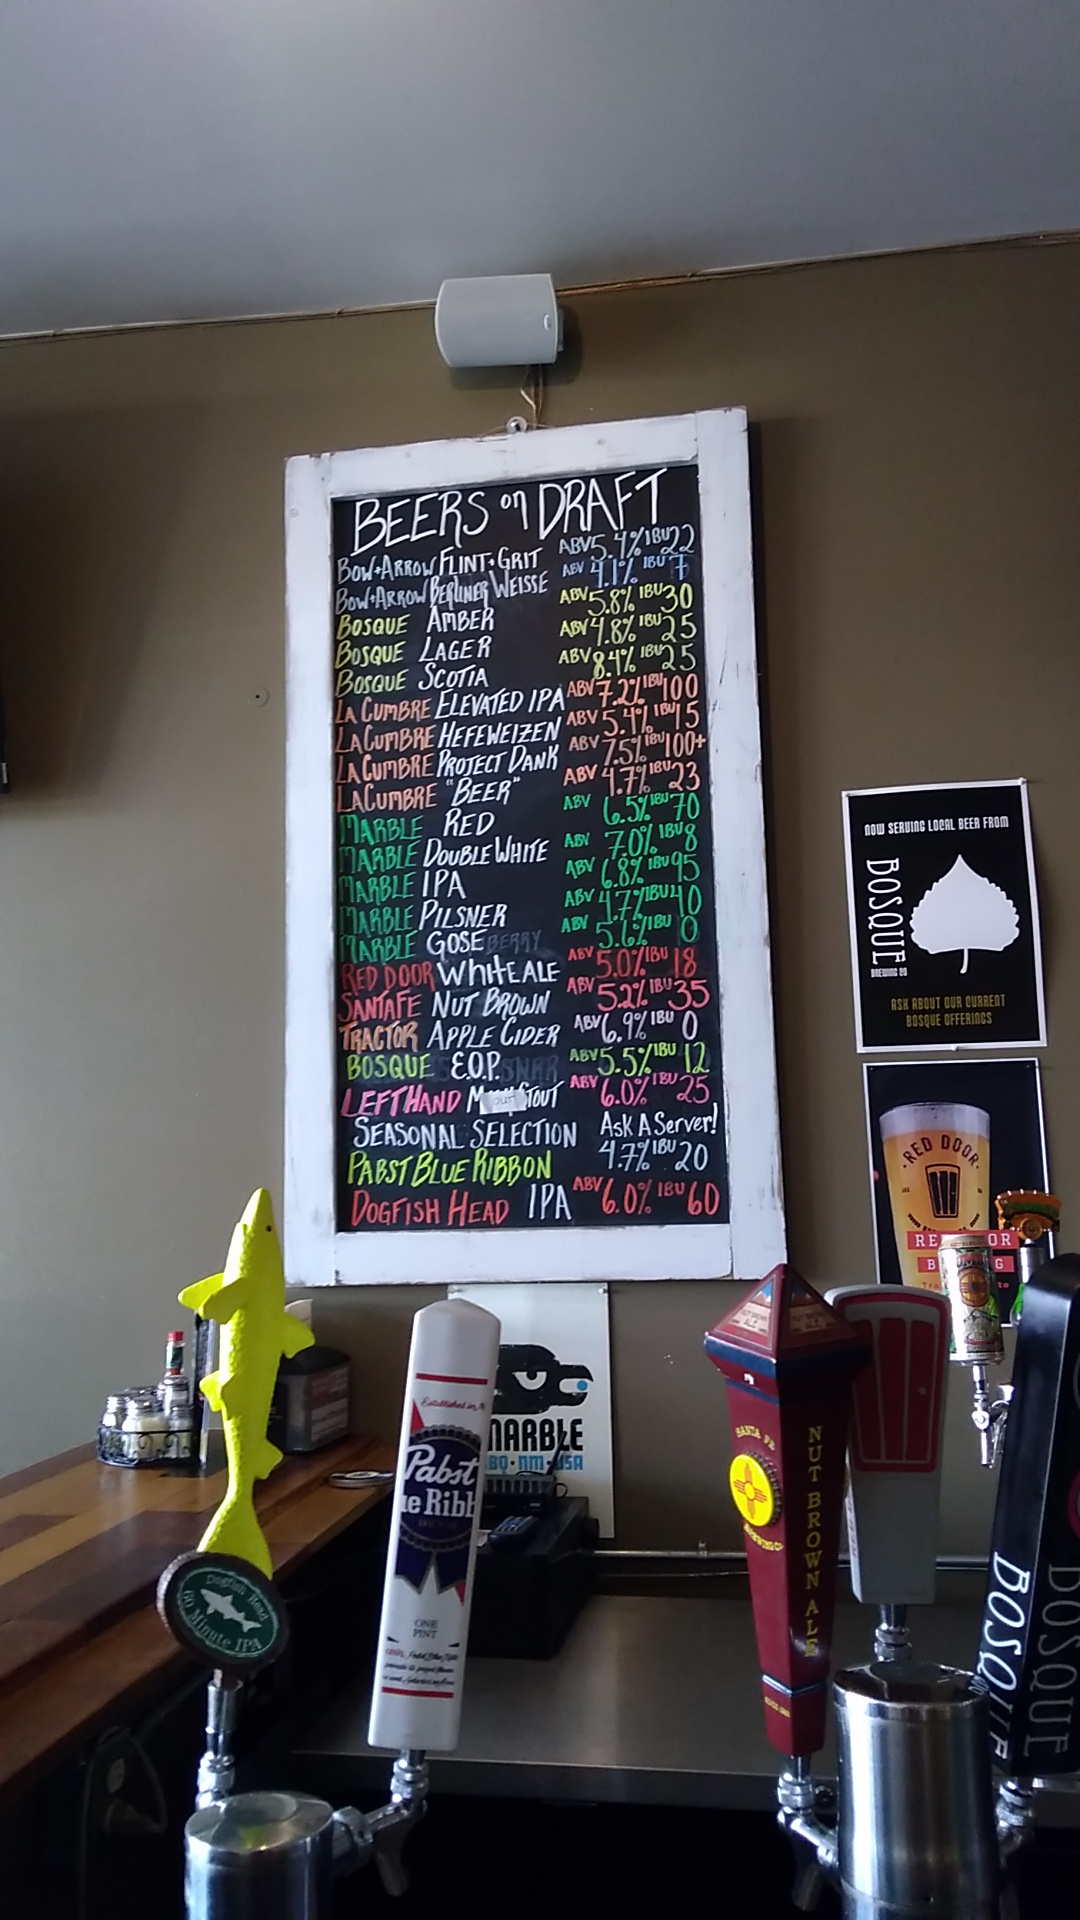 BEERS on DRAFT
BOW+ARROW FLINT+GRIT ABV 5.4% IBU 22
BOW+ARROW BERLINER WEISSE ABV 4.1% IBU 7
BOSQUE AMBER ABV 5.8% IBU 30
BOSQUE LAGER ABV 4.8% IBU 25
BOSQUE SCOTIA ABV 8.4% IBU 25
LA CUMBRE ELEVATED IPA ABV 7.2% IBU 100
LA CUMBRE HEFEWEIZEN ABV 5.4% IBU 15
LA CUMBRE PROJECT DANK ABV 7.5% IBU 100+
LA CUMBRE "BEER" ABV 4.7% IBU 23
MARBLE RED ABV 6.5% IBU 70
MARBLE DOUBLE WHITE ABV 7.0% IBU 8
MARBLE IPA ABV 6.8% IBU 95
MARBLE PILSNER ABV 4.7% IBU 40
MARBLE GOSE BERRY ABV 5.6% IBU 0
RED DOOR WHITE ALE ABV 5.0% IBU 18
SANTA FE NUT BROWN ABV 5.2% IBU 35
TRACTOR APPLE CIDER ABV 6.9% IBU 0
BOSQUE E.O.P. ABV 5.5% IBU 12
LEFTHAND OUT STOUT ABV 6.0% IBU 25
SEASONAL SELECTION Ask A Server!
PABST BLUE RIBBON 4.7% IBU 20
DOGFISH HEAD IPA ABV 6.0% IBU 60
NOW SERVING LOCAL BEER FROM
BOSQUE
BREWING CO
ASK ABOUT OUR CURRENT
BOSQUE OFFERINGS
RED DOOR
MARBLE
ABQ · NM · USA
Established in
Pabst
ue Ribb
ONE
PINT
Dogfish Head
60 Minute IPA
SANTA FE
BREWING CO
NUT BROWN ALE
BOSQUE
BOSQUE